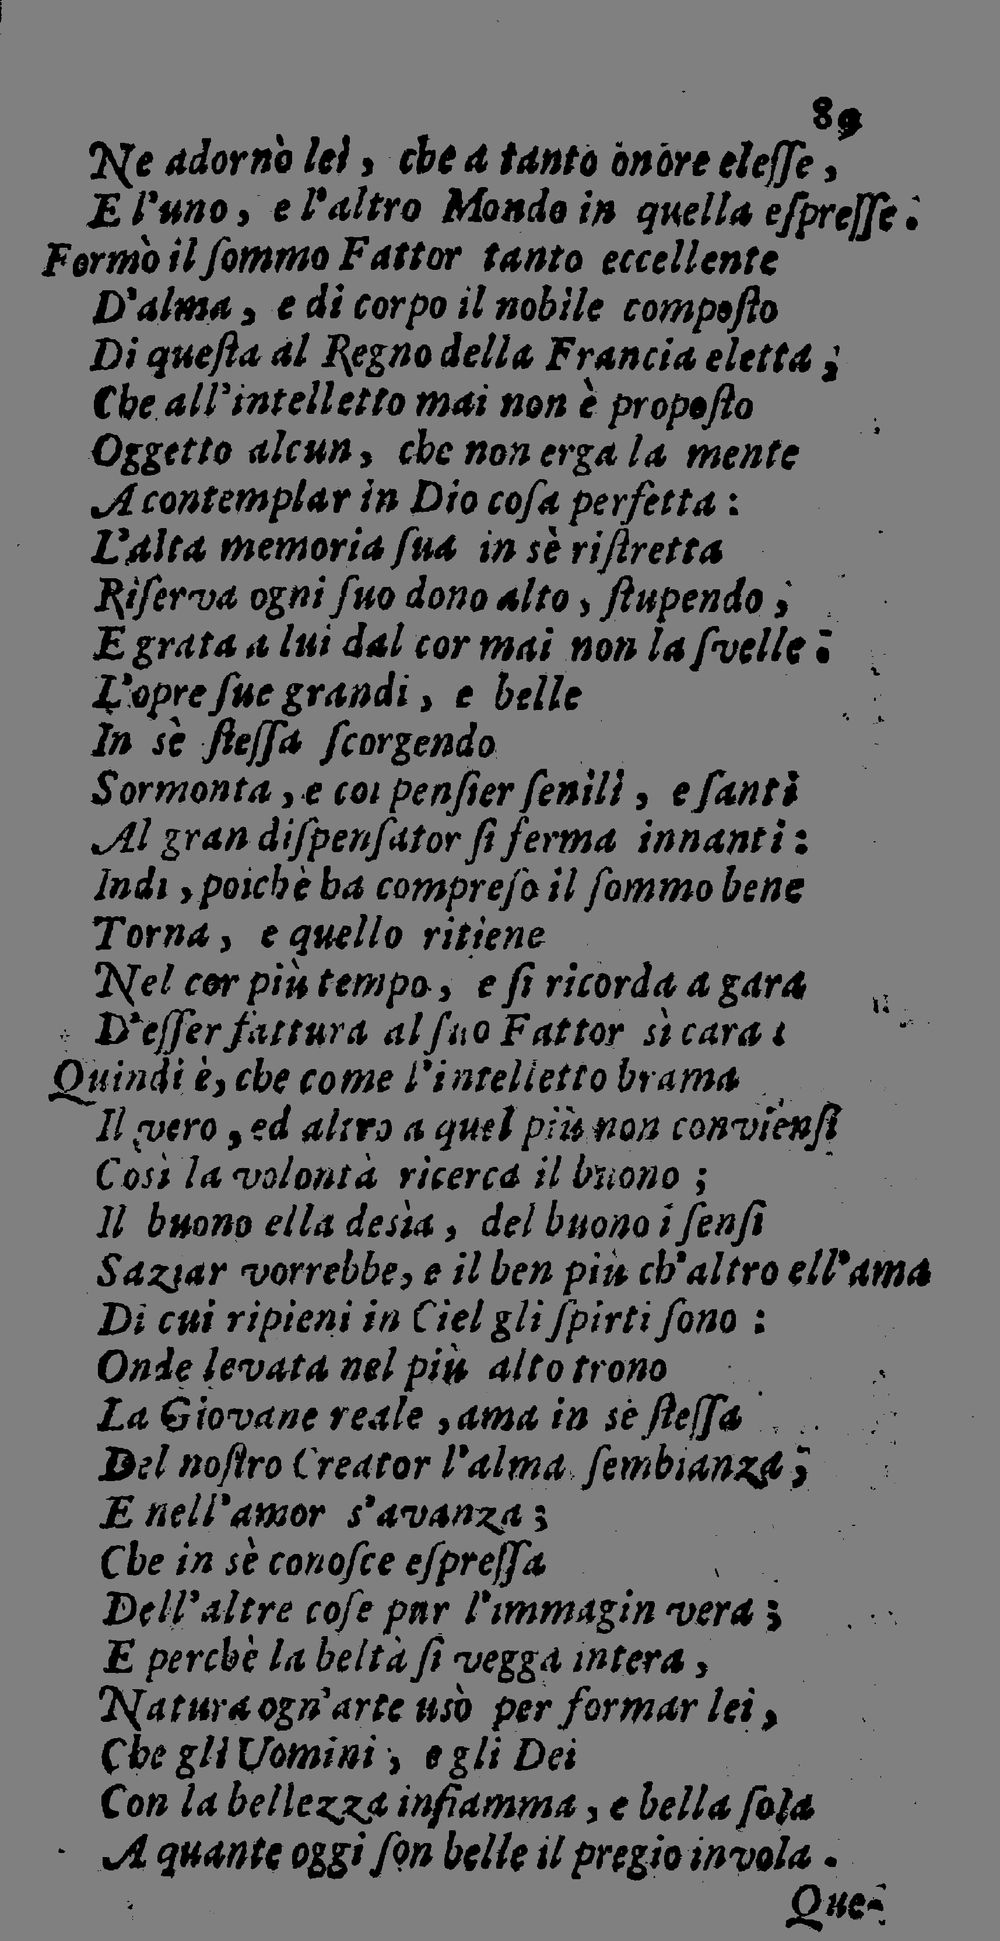 89
Ne adornò lei, che a tanto onore elesse,
E l'uno, e l'altro Mondo in quella espresse:
Formò il sommo Fattor tanto eccellente
D'alma, e di corpo il nobile composto
Di questa al Regno della Francia eletta;
Che all'intelletto mai non è proposto
Oggetto alcun, che non erga la mente
A contemplar in Dio cosa perfetta:
L'alta memoria sua in sè ristretta
Riserva ogni suo dono alto, stupendo;
E grata a lui dal cor mai non la svelle:
L'opre sue grandi, e belle
In sè stessa scorgendo
Sormonta, e coi pensier senili, e santi
Al gran dispensator si ferma innanti:
Indi, poichè ha compreso il sommo bene
Torna, e quello ritiene
Nel cor più tempo, e si ricorda a gara
D'esser fattura al suo Fattor sì cara:
Quindi è, che come l'intelletto brama
Il vero, ed altro a quel più non conviensi
Così la volontà ricerca il buono;
Il buono ella desìa, del buono i sensi
Saziar vorrebbe, e il ben più ch'altro ell'ama
Di cui ripieni in Ciel gli spirti sono:
Onde levata nel più alto trono
La Giovane reale, ama in sè stessa
Del nostro Creator l'alma sembianza;
E nell'amor s'avanza;
Che in sè conosce espressa
Dell'altre cose pur l'immagin vera;
E perchè la beltà si vegga intera,
Natura ogn'arte usò per formar lei,
Che gli Uomini, e gli Dei
Con la bellezza infiamma, e bella sola
A quante oggi son belle il pregio invola.
Que-